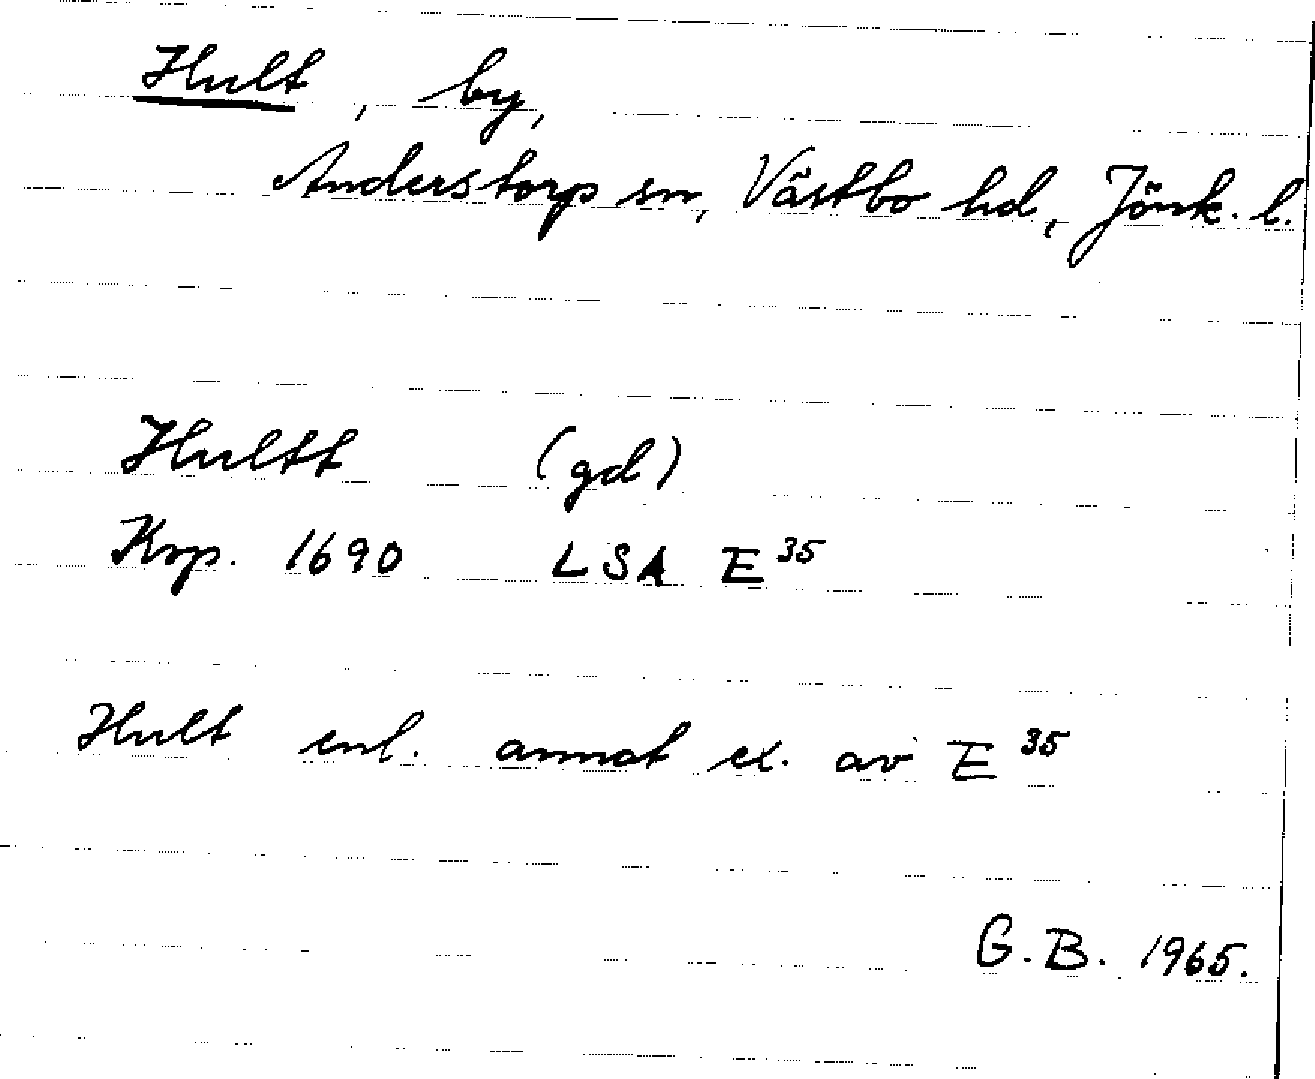 Hult, by,
Anderstorp sn, Västbo hd, Jönk. l.
Hultt (gd)
Krp. 1690 LSA E 35
Hult enl. annat ex. av E 35
G.B. 1965.